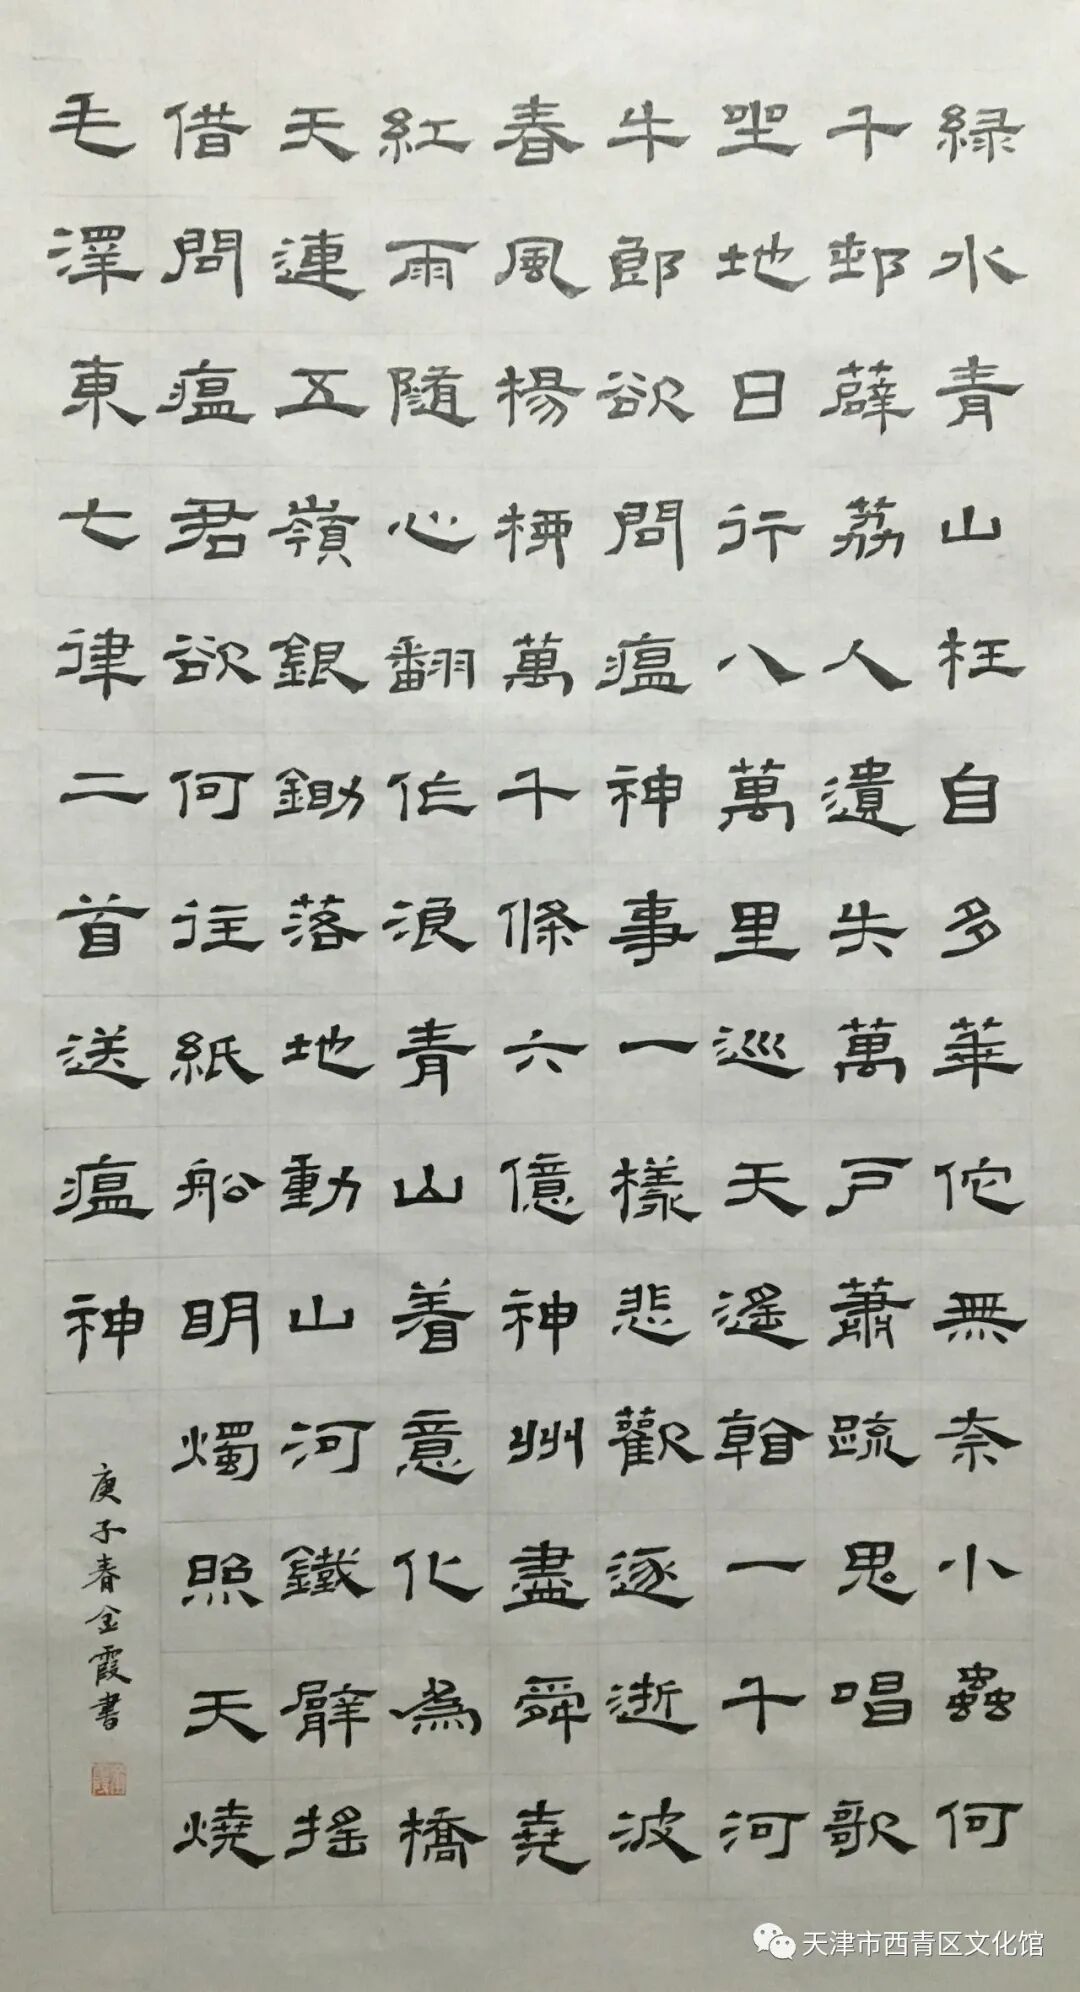 緑水青山枉自多華佗無奈小蟲何
千邨薜荔人遺失萬戶蕭疏鬼唱歌
坐地日行八萬里巡天遙看一千河
牛郎欲問瘟神事一樣悲歡逐逝波
春風楊柳萬千條六億神州盡舜堯
紅雨隨心翻作浪青山着意化為橋
天連五嶺銀鋤落地動山河鐵臂搖
借問瘟君欲何往紙船明燭照天燒
毛澤東七律二首送瘟神
庚子春金霞書
天津市西青区文化馆